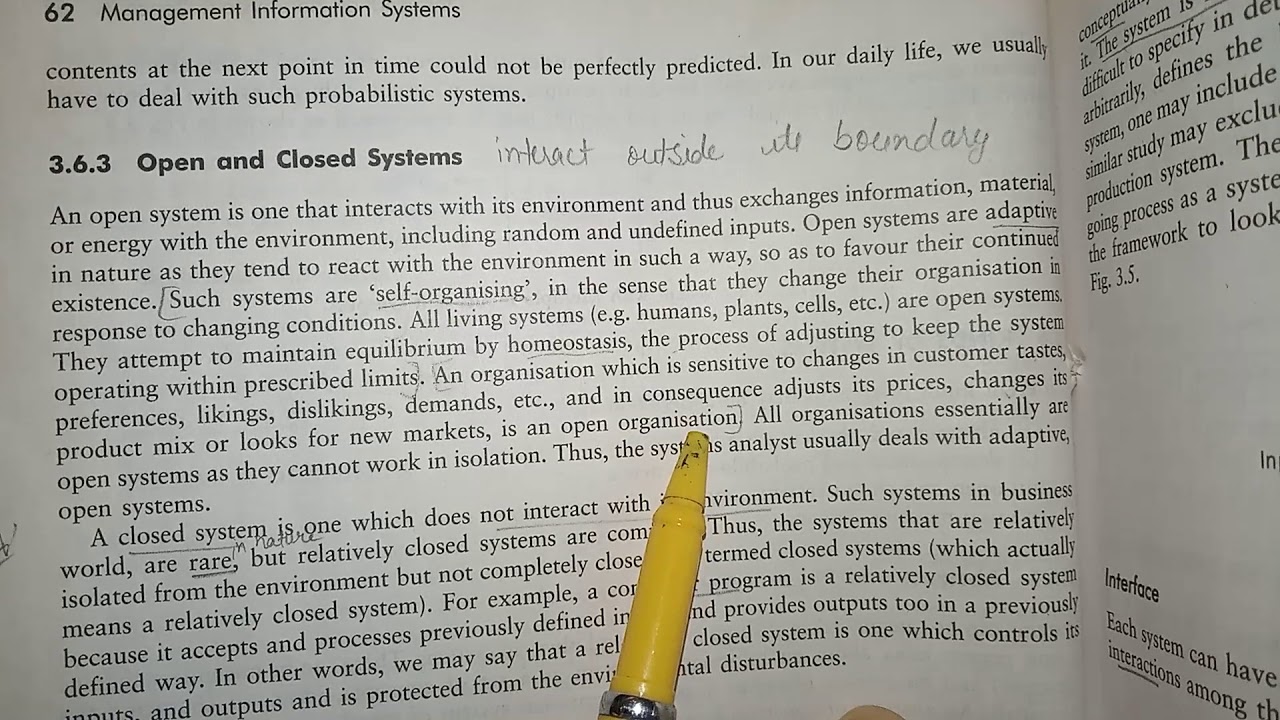 62 Management Information Systems
contents at the next point in time could not be perfectly predicted. In our daily life, we usually
have to deal with such probabilistic systems.
3.6.3 Open and Closed Systems interact outside its boundary
An open system is one that interacts with its environment and thus exchanges information, material,
or energy with the environment, including random and undefined inputs. Open systems are adaptive
in nature as they tend to react with the environment in such a way, so as to favour their continued
existence. [Such systems are ‘self-organising’, in the sense that they change their organisation in
response to changing conditions. All living systems (e.g. humans, plants, cells, etc.) are open systems.
They attempt to maintain equilibrium by homeostasis, the process of adjusting to keep the system
operating within prescribed limits]. An organisation which is sensitive to changes in customer tastes,
preferences, likings, dislikings, demands, etc., and in consequence adjusts its prices, changes its
product mix or looks for new markets, is an open organisation] All organisations essentially are
open systems as they cannot work in isolation. Thus, the systems analyst usually deals with adaptive,
open systems.
A closed system is one which does not interact with environment. Such systems in business
in nature
world, are rare, but relatively closed systems are Thus, the systems that are relatively
isolated from the environment but not completely termed closed systems (which actually
means a relatively closed system). For example, a program is a relatively closed system
because it accepts and processes previously defined and provides outputs too in a previously
defined way. In other words, we may say that a closed system is one which controls its
inputs, and outputs and is protected from the disturbances.
it. The system is
difficult to specify in
arbitrarily, defines the
system, one may include
similar study may
production system. The
going process as a
the framework to look
Fig. 3.5.
Interface
Each system can have
interactions among